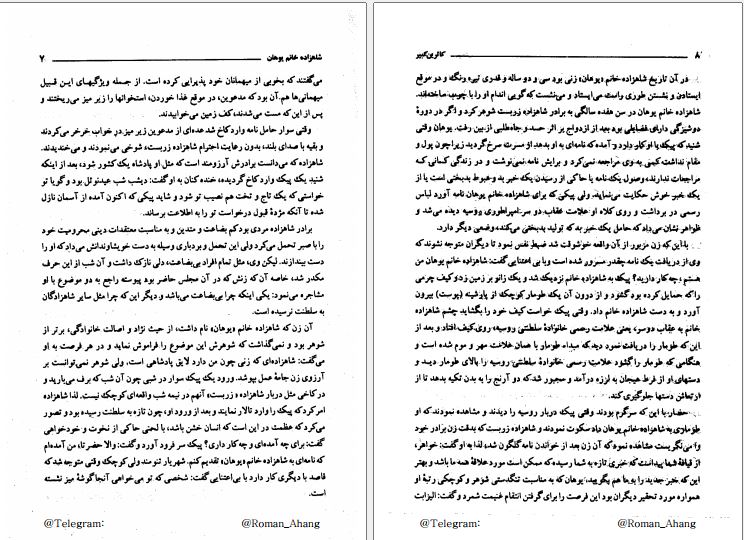 شاهزاده خانم یوهان ۷
می‌گفتند که بخوبی از میهمانان خود پذیرایی کرده است. از جمله ویژگیهای این قبیل
میهمانی‌ها هم آن بود که مدعوین، در موقع غذا خوردن، استخوانها را زیر میز می‌ریختند و
پس از این که مست می‌شدند، کف زمین می‌خوابیدند.
وقتی سوار حامل نامه وارد کاخ شد عده‌ای از مدعوین زیر میز در خواب خرخر می‌کردند
و بقیه با صدای بلند، بدون رعایت احترام شاهزاده زربست، شوخی می‌نمودند و می‌خندیدند.
شاهزاده که می‌دانست برادرش آرزومند است که مثل او پادشاه یک کشور شود، بعد از اینکه
شنید یک پیک وارد کاخ گردیده، خنده کنان به او گفت: دیشب شب عیدنوئل بود و گویا تو
خواستی که یک تاج و تخت هم نصیب تو شود و شاید پیکی که اکنون آمده از آسمان نازل
شده تا آنکه مژدهٔ قبول درخواست تو را به اطلاعت برساند.
برادر شاهزاده مردی بود کم بضاعت و متدین و به مناسبت معتقدات دینی محرومیت خود
را با صبر تحمل می‌کرد ولی این تحمل و بردباری وسیله به دست خویشاوندانش می‌داد که او را
دست بیندازند. لیکن وی، مثل تمام افراد بی‌بضاعت، دلی نازک داشت و آن شب از این حرف
مکدر شد، خاصه آن که زنش که در آن مجلس حاضر بود پیوسته راجع به دو موضوع با او
مشاجره می‌نمود: یکی اینکه چرا بی‌بضاعت می‌باشد و دیگر این که چرا مثل سایر شاهزادگان
به سلطنت نرسیده است.
آن زن که شاهزاده خانم «یوهان» نام داشت، از حیث نژاد و اصالت خانوادگی، برتر از
شوهر بود و نمی‌گذاشت که شوهرش این موضوع را فراموش نماید و در هر فرصت به او
می‌گفت: شاهزاده‌ای که زنی چون من دارد لایق پادشاهی است، ولی شوهر نمی‌توانست بر
آرزوی زن جامهٔ عمل بپوشد. ورود یک پیک سوار در شبی چون آن شب که برف می‌بارید و
در کاخی مثل دربار شاهزاده «زربست» آنهم در نیمه شب واقعه‌ای کوچک نیست. لذا شاهزاده
امر کرد که پیک را وارد تالار نمایند و بعد از ورود او، چون تازه به سلطنت رسیده بود و تصور
می‌کرد که عظمت در این است که انسان خشن باشد، با لحنی حاکی از نخوت و خودخواهی
گفت: برای چه آمده‌ای و چه کار داری؟ پیک سر فرود آورد و گفت: والا حضرتا، من آمده‌ام
که نامه‌ای به شاهزاده خانم «یوهان» تقدیم کنم. شهریار تنومند ولی کوچک وقتی متوجه شد که
قاصد با دیگری کار دارد با بی‌اعتنایی گفت: شخصی که تو می‌خواهی آنجا گوشهٔ میز نشسته
است.
@Telegram: @Roman_Ahang
۸ کاترین کبیر
در آن تاریخ شاهزاده خانم «یوهان» زنی بود سی و دو ساله و قدری تیره رنگ و در موقع
ایستادن و نشستن طوری راست می‌ایستاد و می‌نشست که گویی اندام او را با چوب ساخته‌اند.
شاهزاده خانم یوهان در سن هفده سالگی به برادر شاهزاده زربست شوهر کرد و اگر در دورهٔ
دوشیزگی دارای فضایلی بود بعد از ازدواج بر اثر حسد و جاه‌طلبی از بین رفت. یوهان وقتی
شنید که پیک با او کار دارد و آمده که نامه‌ای به او بدهد از مسرت سرخ گردید زیرا چون پول و
مقام نداشت کسی به وی مراجعه نمی‌کرد و برایش نامه نمی‌نوشت و در زندگی کسانی که
مراجعات ندارند، وصول یک نامه یا حاکی از رسیدن یک خبر بد و مربوط بدبختی است یا از
یک خبر خوش حکایت می‌نماید. ولی پیکی که برای شاهزاده خانم یوهان نامه آورد لباس
رسمی در برداشت و روی کلاه او علامت عقاب دو سر امپراطوری روسیه دیده می‌شد و
ظواهر نشان می‌داد که حامل یک خبر بد که تولید بدبختی می‌کند، وضعی دیگر دارد.
با این که زن مزبور از آن واقعه خوشوقت شد ضبط نفس نمود تا دیگران متوجه نشوند که
وی از دریافت یک نامه چقدر مسرور شده است و با بی اعتنایی گفت: شاهزاده خانم یوهان من
هستم، چه کار دارید؟ پیک به شاهزاده خانم نزدیک شد و یک زانو بر زمین زد و کیف چرمی
را که حمایل کرده بود گشود و از درون آن یک طومار کوچک از پارشینه (پوست) بیرون
آورد و به دست شاهزاده خانم داد. وقتی پیک خواست کیف خود را بگشاید چشم شاهزاده
خانم به عقاب دوسر، یعنی علامت رسمی خانوادهٔ سلطنتی روسیه، روی کیف افتاد و بعد از
این که طومار را دریافت نمود دید که مبداء طومار با همان علامت مهر و موم شده است و
هنگامی که طومار را گشود علامت رسمی خانوادهٔ سلطنتی روسیه را بالای طومار دید و
دستهای او از فرط هیجان به لرزه درآمد و مجبور شد که دو آرنج را به بدن تکیه بدهد تا از
ارتعاش دستها جلوگیری کند.
حضار با این که سرگرم بودند وقتی پیک دربار روسیه را دیدند و مشاهده نمودند که او
طوماری به شاهزاده خانم یوهان داد سکوت نمودند و شاهزاده زربست که بدقت زن برادر خود
را می‌نگریست مشاهده نمود که آن زن بعد از خواندن نامه گلگون شد، لذا به او گفت: خواهر،
از قیافهٔ شما پیداست که خبری تازه به شما رسیده که ممکن است مورد علاقهٔ همه ما باشد و بهتر
این که خبر جدید را به ما هم بگویید، یوهان که به مناسبت تنگدستی شوهر و کوچکی رتبهٔ او
همواره مورد تحقیر دیگران بود این فرصت را برای گرفتن انتقام غنیمت شمرد و گفت: الیزابت
@Telegram: @Roman_Ahang